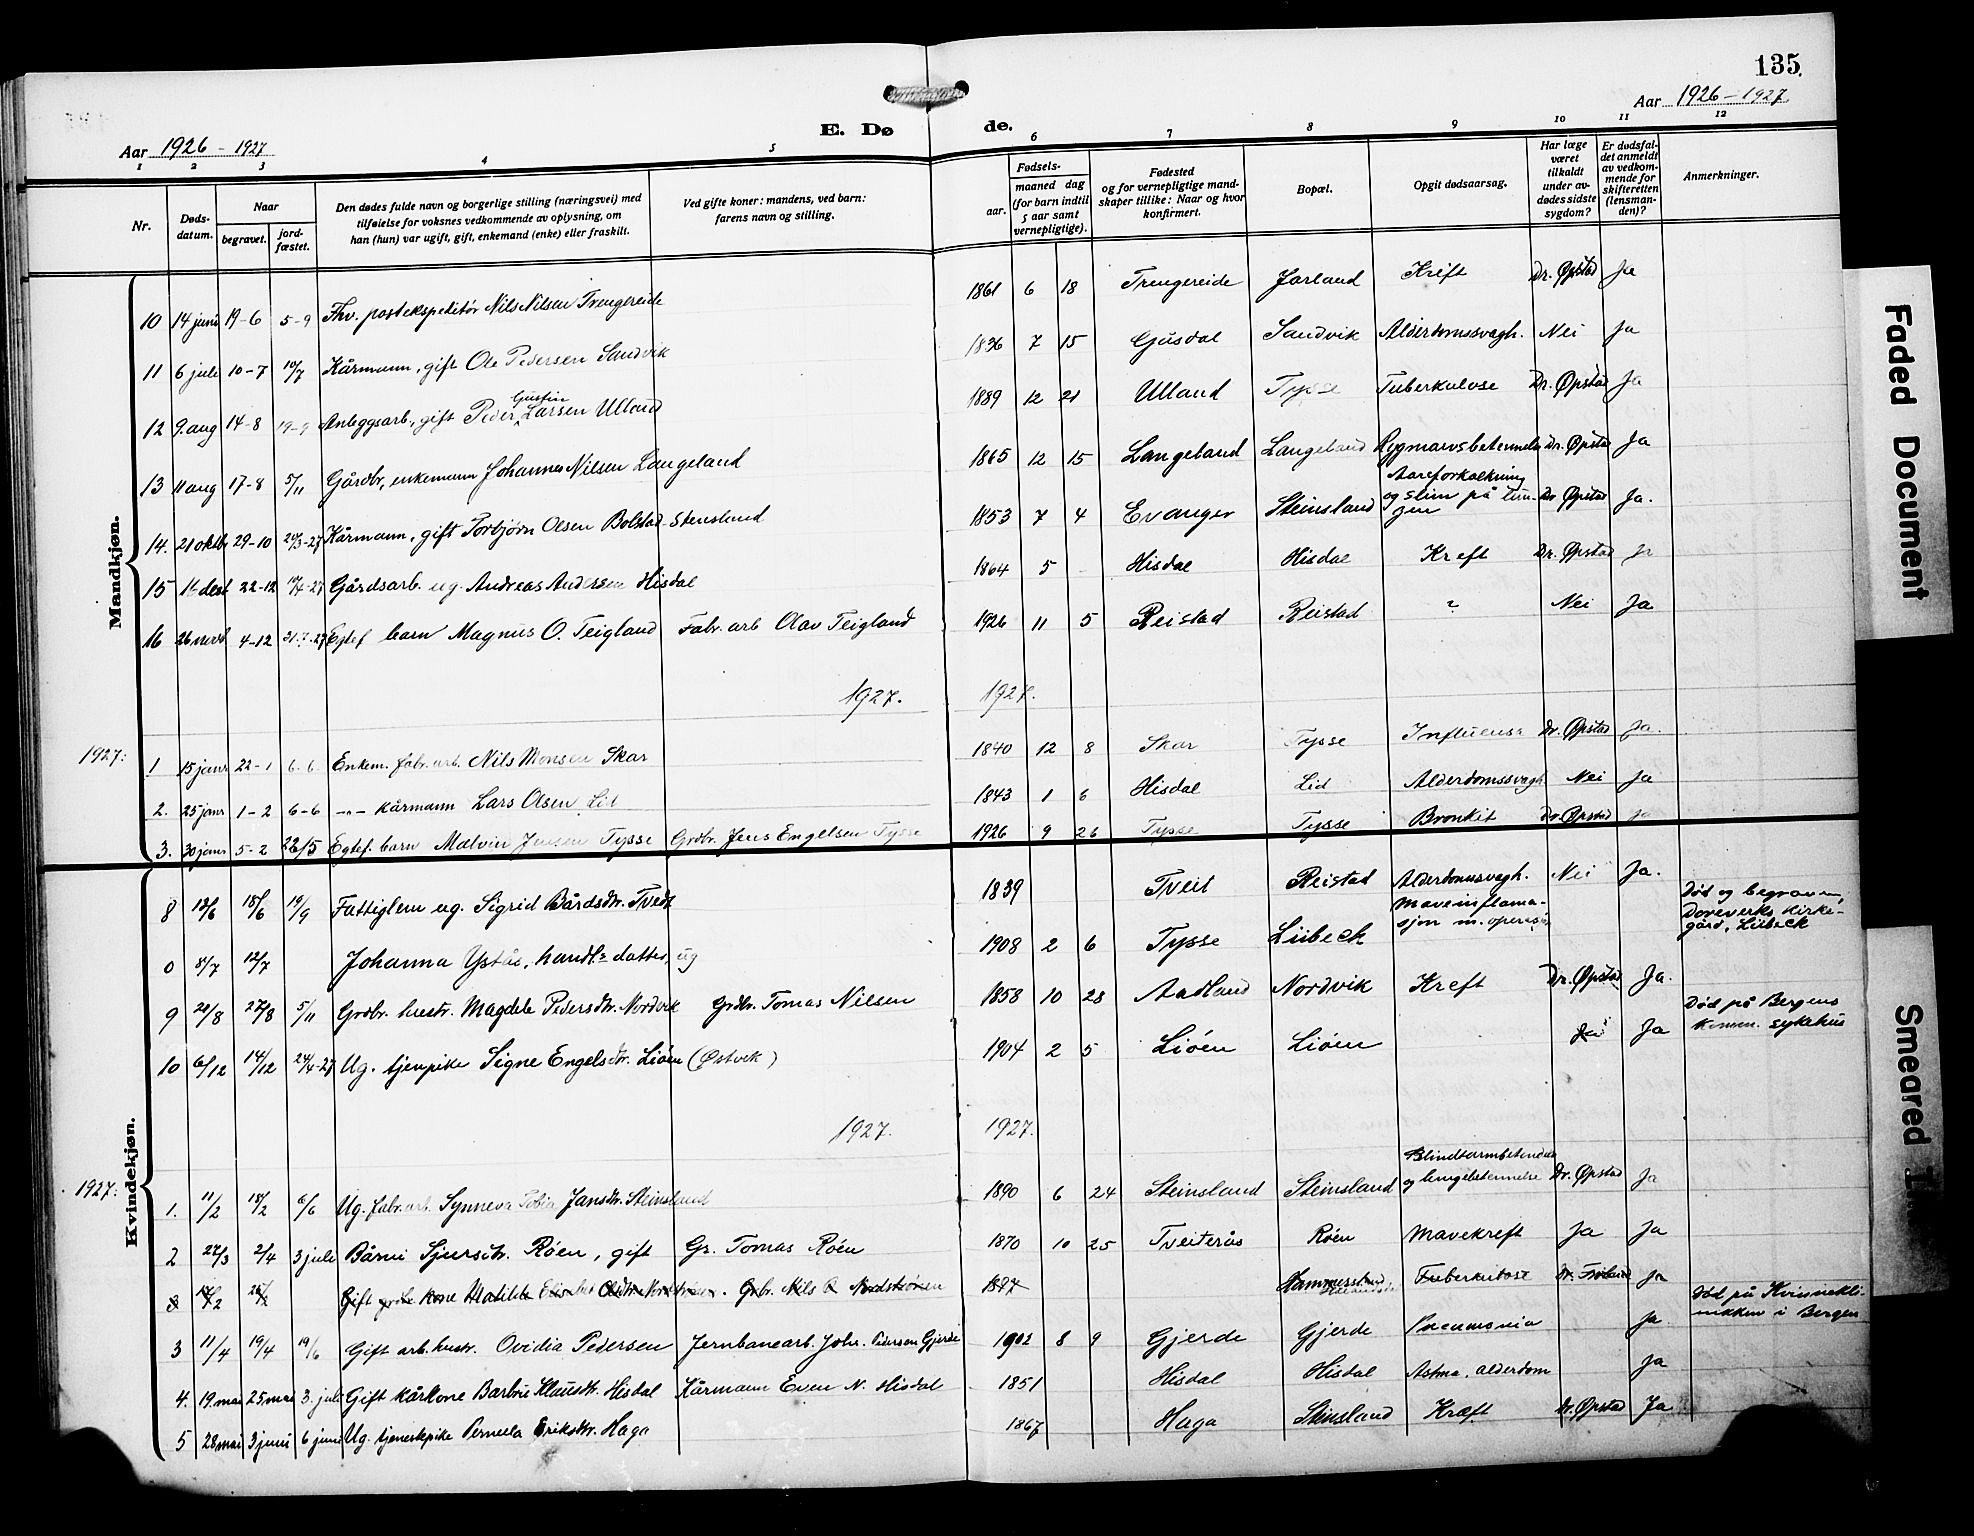 135.
Aar 1926 - 1927
E. Dø de.
Aar 1926 - 1927
1 2 3 4 5 6 7 8 9 10 11 12
Nr.
Døds-datum.
Naar
begravet.
jord-fæstet.
Den dødes fulde navn og borgerlige stilling (næringsvei) med
tilføielse for voksnes vedkommende av oplysning, om
han (hun) var ugift, gift, enkemand (enke) eller fraskilt.
Ved gifte koner: mandens, ved barn:
farens navn og stilling.
Fødsels-
aar.
maaned dag
(for barn indtil
5 aar samt
vernepligtige).
Fødested
og for vernepligtige mand-
skaper tillike: Naar og hvor
konfirmert.
Bopæl.
Opgit dødsaarsag.
Har læge
været
tilkaldt
under av-
dødes sidste
sygdom?
Er dødsfal-
det anmeldt
av vedkom-
mende for
skifteretten
(lensman-
den)?
Anmerkninger.
Mandkjøn.
10 14 juni 19-6 5-9 Fhv. postekspeditør Nils Nilsen Trengereide 1861 6 18 Trengereide Jarland Kreft Dr. Øpstad Ja
11 6 juli 10-7 10/7 Kårmann, gift Ole Pedersen Sandvik 1836 7 15 Gusdal Sandvik Alderdomssvagh. Nei Ja
Gustin
12 9. aug 14-8 19-9 Anleggsarb., gift Peder Larsen Ulland 1889 12 21 Ulland Tysse Tuberkulose Dr. Øpstad Ja
13 11 aug 17-8 5/11 Gårdbr, enkemann Johannes Nilsen Langeland 1865 12 15 Langeland Langeland Rygmarvsbetennelse Dr. Øpstad Ja
14. 21 oktbr 29-10 24/3-27 Kårmann, gift Torbjørn Olsen Bolstad-Stensland 1853 7 4 Evanger Steinsland Aareforkalkning
og slim på lun-
gen Dr Øpstad Ja.
15 16 des 22-12 19/4-27 Gårdsarb. ug. Andreas Andersen Hisdal 1864 5 - Hisdal Hisdal Kreft Dr. Øpstad Ja
16 26 novb 4-12 21.7.27 Egtef barn Magnus O. Teigland Fabr. arb Olav Teigland 1926 11 5 Reistad Reistad ? Nei Ja
1927. 1927.
1927:
1 15 janr 22-1 6-6 Enkem. fabr. arb. Nils Monsen Skar 1840 12 8 Skar Tysse Influensa Dr. Øpstad Ja.
2. 25 janr 1-2 6-6 -"- kårmann Lars Olsen Lid 1843 1 6 Hisdal Lid Alderdomssvagh Nei Ja
3. 30 janr 5-2 22/5 Egtef. barn Malvin Jensen Tysse Grdbr. Jens Engelsen Tysse 1926 9 26 Tysse Tysse Bronkit Dr Øpstad Ja
Kvindekjøn.
8 12/6 18/6 19/9 Fattiglem ug. Sigrid Bårdsdtr. Tveit 1839 Tveit Reistad Alderdomssvagh. Nei Ja.
0 8/7 12/7 Johanna Ystås, handl.s datter, ug 1908 2 6 Tysse Lübeck Maveinflama-
sjon m. operasjon Død og begraven,
Doreverks Kirke-
gård, Lübeck
9 20/8 27/8 5/11 Grdbr. hustr. Magdele Pedersdtr. Nordvik Grdbr. Tomas Nilsen 1858 10 28 Aadland Nordvik Kreft Dr. Øpstad Ja.
10 6/12 14/12 24/4-27 Ug. tjenpike Signe Engelsdtr. Liøen (Østvik) 1904 2 5 Liøen Liøen Ja Ja Død på Bergens
komm. sykehus
1927. 1927.
1927:
1. 11/2 18/2 6/6 Ug. fabr. arb. Synneva Tobia Jansdtr. Steinsland 1890 6 24 Steinsland Steinsland Blindtarmbetendelse
og lungebetennelse Dr. Øpstad Ja
2 27/3 2/4 3 juli Bårni Sjursdtr. Røen, gift Gr. Tomas Røen 1870 10 25 Tveiterås Røen Mavekreft Ja Ja
3 18/2 26/2 Gift kone Matilde Elisabet Olsdtr Grbr. Nils O 1887 Hammersland Tuberkulose Dr. Ja
3 11/4 19/4 19/6 Gift arb. hustr. Ovidia Pedersen Jernbanearb. Johs. Pedersen Gjerde 1902 8 9 Gjerde Gjerde Pneumonia Ja. Død på Kvinnekli-
nikken i Bergen
4. 19. mai 25 mai 3. juli Gift kårkone Barbru Klausdtr. Hisdal Kårmann Even N. Hisdal 1851 Hisdal Hisdal Astma, alderdom Ja
5 28 mai 3 juni 6 juni Ug. tjenestepike Pernella Eriksdtr. Haga 1867 Haga Steinsland Kræft Dr. Øpstad Ja
Faded Document
Smeared